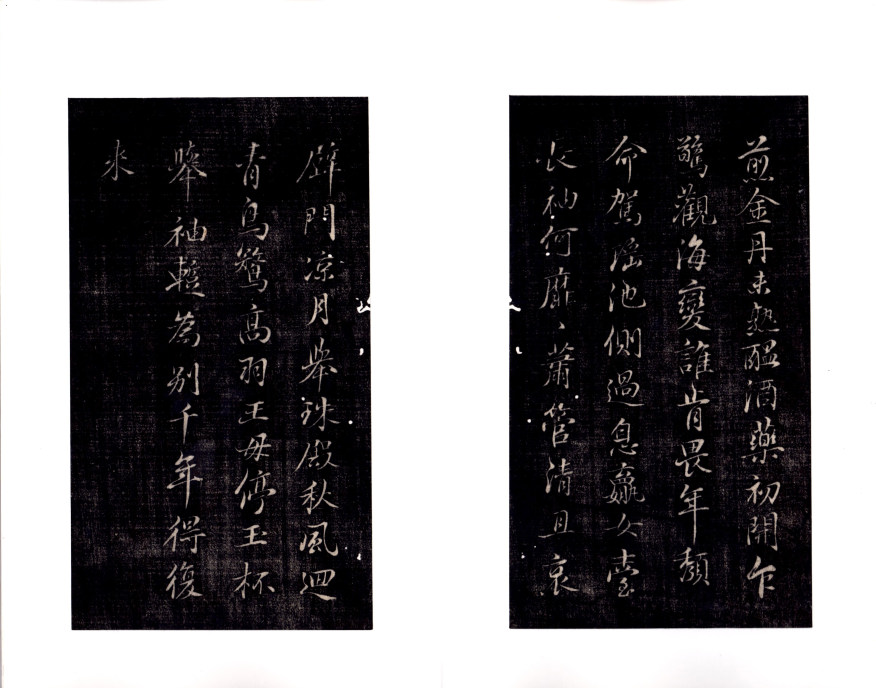 煎金丹未熟醞酒藥初開乍
驚觀海變誰肯畏年頹
命駕瑶池側過息嬴女臺
長袖何靡〻蕭管清且哀
壁門凉月舉珠殿秋風迴
青鳥鶩高羽王母停玉杯
舉袖蹔為别千年得復
来